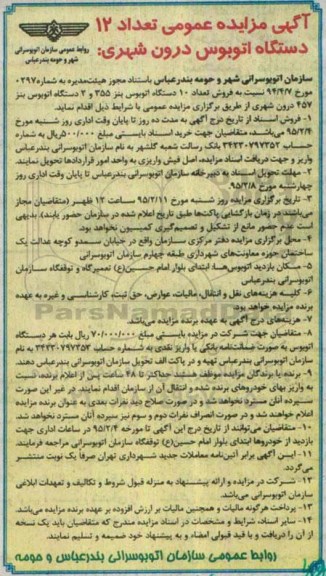 آگهی مزایده عمومی تعداد ۱۲
دستگاه اتوبوس درون شهری:
روابط عمومی سازمان اتوبوسرانی
شهر و حومه بندرعباس
سازمان اتوبوسرانی شهر و حومه بندرعباس باستناد مجوز هیئت‌مدیره به شماره ۰۲۹۷
مورخ ۹۴/۴/۷ نسبت به فروش تعداد ۱۰ دستگاه اتوبوس بنز ۳۵۵ و ۲ دستگاه اتوبوس بنز
۴۵۷ درون شهری از طریق برگزاری مزایده عمومی با شرایط ذیل اقدام نماید.
۱- فروش اسناد از تاریخ درج آگهی به مدت ده روز تا پایان وقت اداری روز شنبه مورخ
۹۵/۲/۴ می‌باشد، متقاضیان جهت خرید اسناد بایستی مبلغ ۵۰۰/۰۰۰ ریال به شماره
حساب ۳۴۲۳۰۷۹۷۳۵۲ بانک رسالت شعبه گلشهر به نام سازمان اتوبوسرانی بندرعباس
واریز و جهت دریافت اسناد مزایده، اصل فیش واریزی به واحد امور قراردادها تحویل نمایند.
۲- مهلت تحویل اسناد به دبیرخانه سازمان اتوبوسرانی بندرعباس تا پایان وقت اداری روز
چهارشنبه مورخ ۹۵/۲/۸.
۳- تاریخ برگزاری مزایده روز شنبه مورخ ۹۵/۲/۱۱ ساعت ۱۲ ظهر (متقاضیان مجاز
می‌باشند در زمان بازگشایی پاکت‌ها طبق تاریخ اعلام شده در سازمان حضور یابند). بدیهی
است عدم حضور مانع از تشکیل و تصمیم‌گیری کمیسیون نخواهد بود.
۴- محل برگزاری مزایده دفتر مرکزی سازمان واقع در خیابان سیدو کوچه عدالت یک
ساختمان حوزه معاونت‌های شهرداری طبقه چهارم سازمان اتوبوسرانی
۵- مکان بازدید اتوبوس‌ها: ابتدای بلوار امام حسین(ع) تعمیرگاه و توقفگاه سازمان
اتوبوسرانی بندرعباس
۶- کلیه هزینه‌های نقل و انتقال، مالیات، عوارض، حق ثبت، کارشناسی و غیره به عهده
برنده مزایده خواهد بود.
۷- هزینه‌های درج آگهی به عهده برنده مزایده می‌باشد.
۸- متقاضیان جهت شرکت در مزایده بایستی مبلغ ۷۰/۰۰۰/۰۰۰ ریال بابت هر دستگاه
اتوبوس به صورت ضمانت‌نامه بانکی یا واریز نقدی به شماره حساب ۳۴۲۳۰۷۹۷۳۵۲ به نام
سازمان اتوبوسرانی بندرعباس تهیه و در پاکت الف تحویل سازمان اتوبوسرانی بندرعباس دهند.
۹- برنده یا برندگان مزایده موظف هستند حداکثر تا ۴۸ ساعت پس از اعلام برنده، نسبت
به واریز بهای خودروهای برنده شده و انتقال آن از سازمان اقدام نمایند. در غیر این صورت
سپرده آنان مسترد نخواهد شد و در صورت صلاح دید نفرات بعدی به عنوان برنده مزایده
اعلام خواهند شد و در صورت انصراف نفرات دوم و سوم نیز سپرده آنان مسترد نخواهد شد.
۱۰- متقاضیان می‌توانند از تاریخ درج این آگهی تا مورخه ۹۵/۲/۴ در ساعات اداری جهت
بازدید از خودروها ابتدای بلوار امام حسین(ع) توقفگاه سازمان اتوبوسرانی مراجعه فرمایند.
۱۱- این آگهی برابر آئین‌نامه معاملات جدید شهرداری تهران صرفاً یک نوبت منتشر
می‌گردد.
۱۲- شرکت در مزایده و ارائه پیشنهاد به منزله قبول شروط و تکالیف و تعهدات ابلاغی
سازمان اتوبوسرانی می‌باشد.
۱۳- پرداخت هرگونه مالیات و همچنین مالیات بر ارزش افزوده بر عهده برنده مزایده می‌باشد.
۱۴- سایر اسناد، شرایط و مشخصات در اسناد مزایده مندرج که متقاضیان باید یک نسخه
از آن را دریافت و با قید قبولی امضاء و به پیشنهاد خود ضمیمه و تسلیم نمایند.
روابط عمومی سازمان اتوبوسرانی بندرعباس و حومه